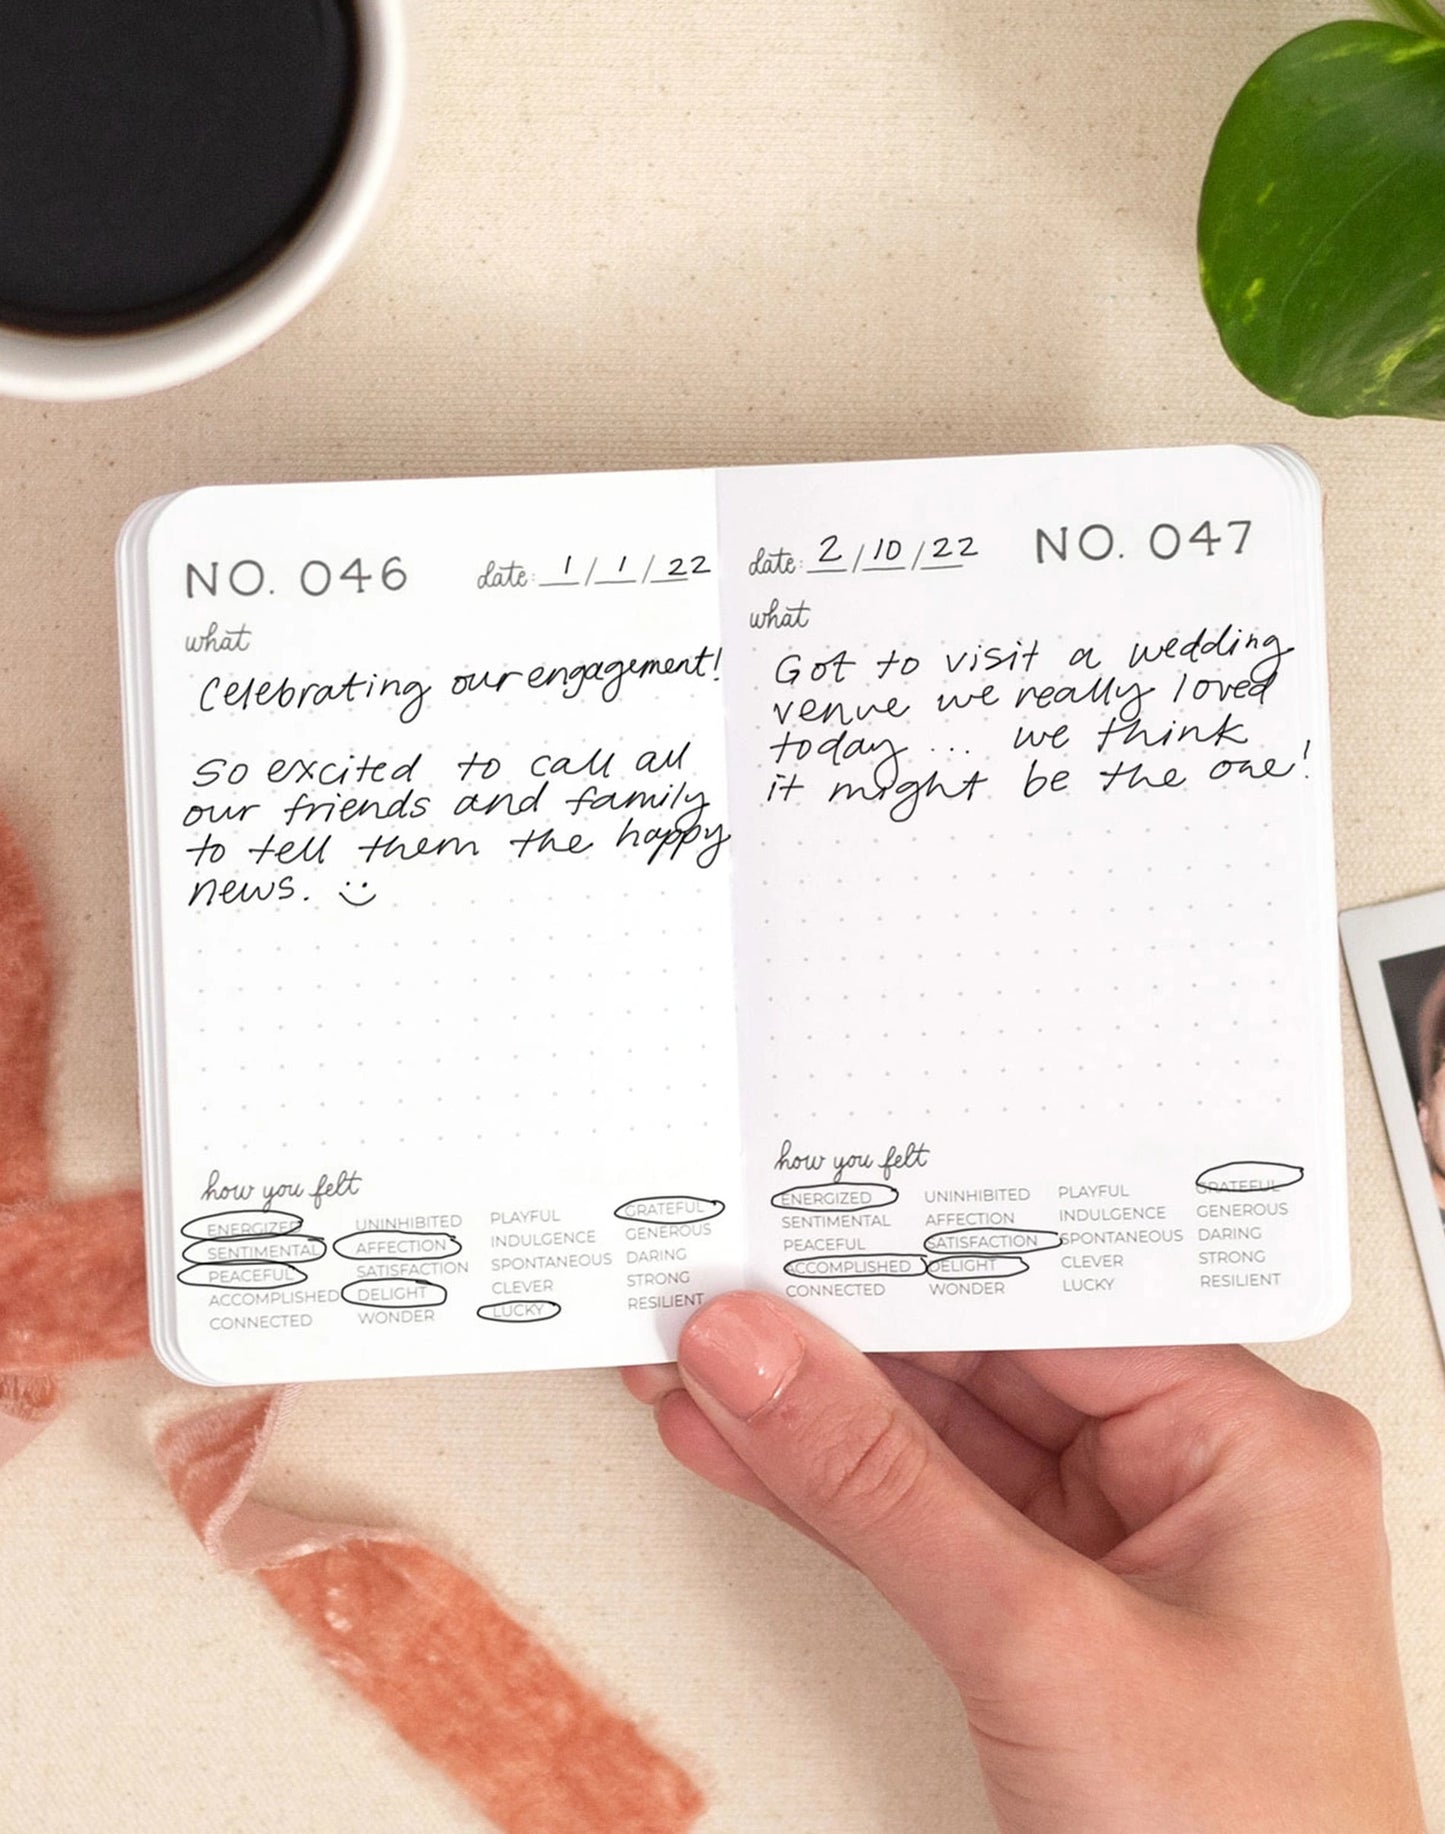 NO. 046
date: 1/1/22
what
Celebrating our engagement!
so excited to call all
our friends and family
to tell them the happy
news. :)
how you felt
ENERGIZED UNINHIBITED PLAYFUL GRATEFUL
SENTIMENTAL AFFECTION INDULGENCE GENEROUS
PEACEFUL SATISFACTION SPONTANEOUS DARING
ACCOMPLISHED DELIGHT CLEVER STRONG
CONNECTED WONDER LUCKY RESILIENT
NO. 047
date: 2/10/22
what
Got to visit a wedding
venue we really loved
today ... we think
it might be the one!
how you felt
ENERGIZED UNINHIBITED PLAYFUL GRATEFUL
SENTIMENTAL AFFECTION INDULGENCE GENEROUS
PEACEFUL SATISFACTION SPONTANEOUS DARING
ACCOMPLISHED DELIGHT CLEVER STRONG
CONNECTED WONDER LUCKY RESILIENT